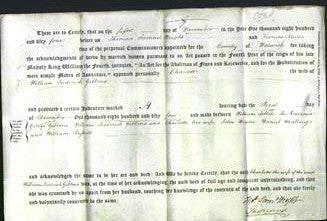 These are to Certify, that on the fifth day of December in the Year One thousand eight hundred
and fifty four before us Thomas Samuel Wright and Thomas
two of the perpetual Commissioners appointed for the County of Warwick for
taking the acknowledgments of deeds by married women pursuant to an Act passed in the fourth year of the reign of his late
Majesty King William the Fourth, intituled, "An Act for the Abolition of Fines and Recoveries, and for the Substitution of
more simple Modes of Assurance," appeared personally Charlotte the wife of
William Frederick Gibbons
and produced a certain Indenture marked A bearing date the day
of December One thousand eight hundred and fifty four and made between William the
George Gibbons William Frederick Gibbons and Charlotte his wife John Daniel
and William
and acknowledged the same to be her act and deed: And We do hereby Certify that the said Charlotte the wife of the said
William Frederick Gibbons was, at the time of her acknowledging the said deed of full age and competent understanding, and that
she was examined by us apart from her husband, touching her knowledge of the contents of the said deed, and that she freely
and voluntarily consented to the same.